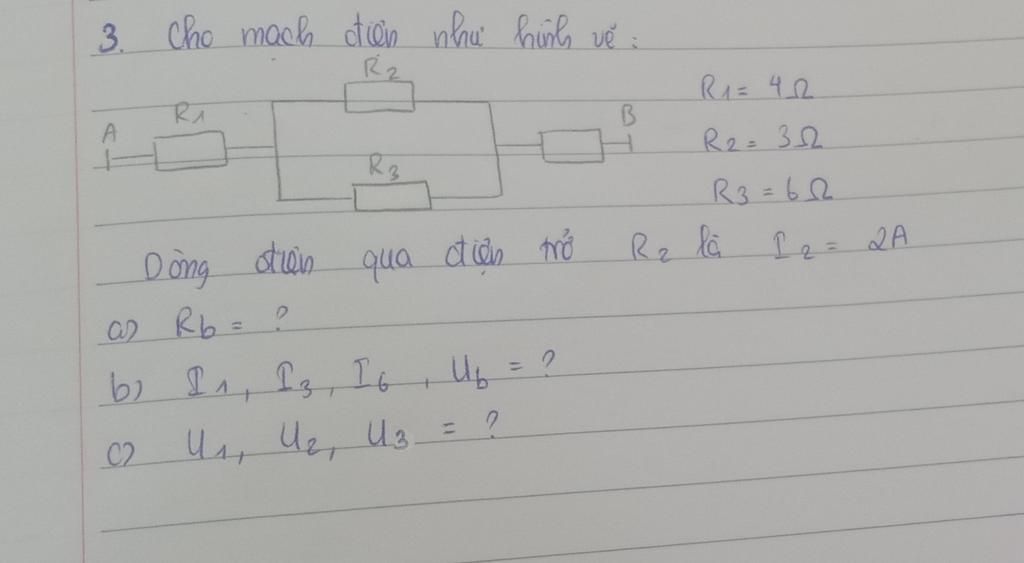 3. Cho mạch điện như hình vẽ:
R2
R1 = 4Ω
A R1 B
R2 = 3Ω
R3
R3 = 6Ω
Dòng điện qua điện trở R2 là I2 = 2A
a) Rb = ?
b) I1, I3, I6, Ub = ?
c) U1, U2, U3 = ?